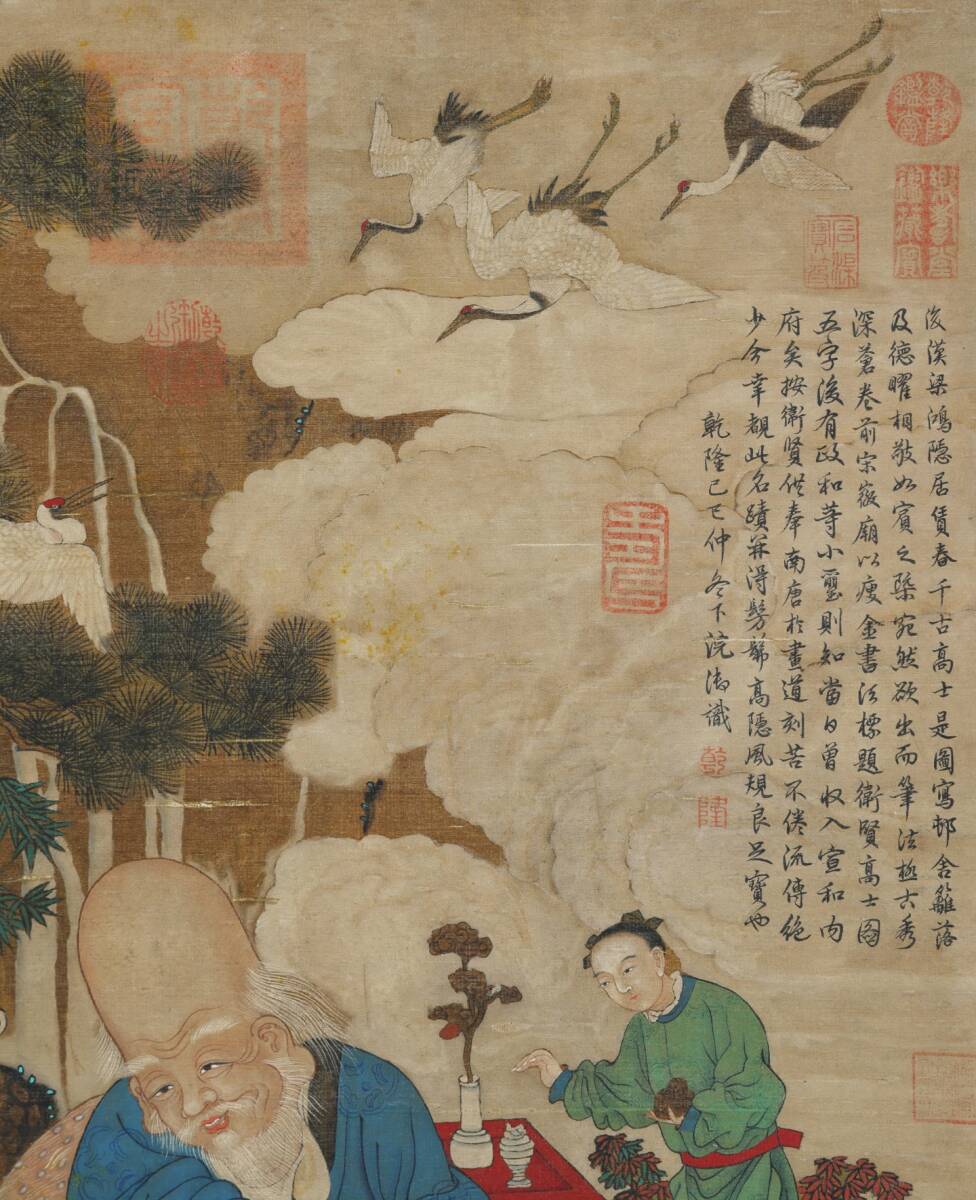 後漢梁鴻隱居賃舂千古高士是圖寫邨舍籬落
及德曜相敬如賓之槩宛然欲出而筆法極古秀
深蒼卷前宋徽廟以瘦金書法標題衛賢高士圖
五字後有政和等小璽則知當日曾收入宣和內
府矣按衛賢供奉南唐於畫道刻苦不倦流傳絶
少今幸覩此名蹟並得髣髴高隱風規良足寶也
乾隆己巳仲冬下浣御識
乾
隆
乾隆鑑賞